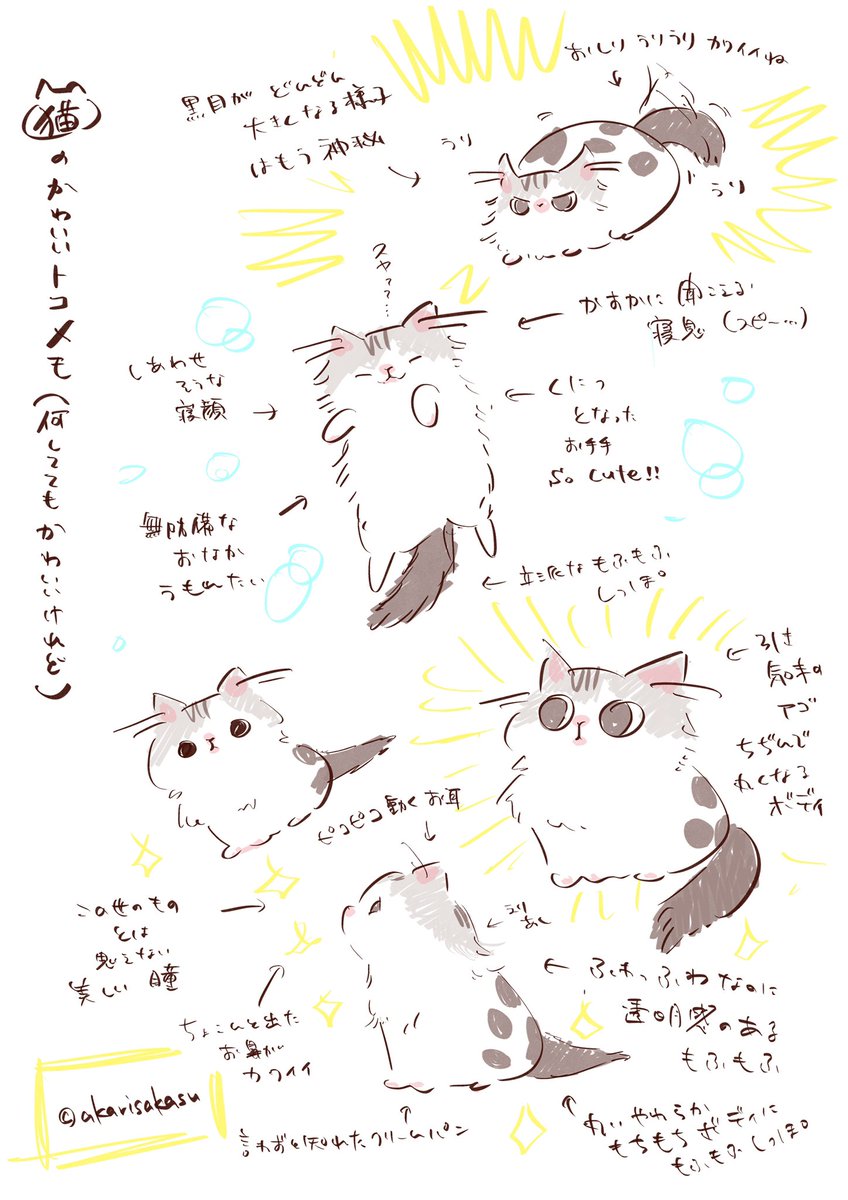 猫のかわいいトコメモ(何しててもかわいいけれど)
おしりうりうりカワイイね
黒目がどんどん
大きくなる様子
はもう神秘
うり
うり
スヤァ…
かすかに聞こえる
寝息(スピー…)
しあわせ
そうな
寝顔
くにっ
となった
お手手
So cute!!
無防備な
おなか
うもれたい
立派なもふもふ
しっぽ。
引き
気味の
アゴ
ちぢんで
丸くなる
ボディ
ピコピコ動くお耳
この世のもの
とは
思えない
美しい瞳
えりあし
ちょこんと出た
お鼻が
カワイイ
ふわっふわなのに
透明感のある
もふもふ
言わずと知れたクリームパン
丸いやわらか
もちもちボディに
もふもふしっぽ。
©akarisakasu